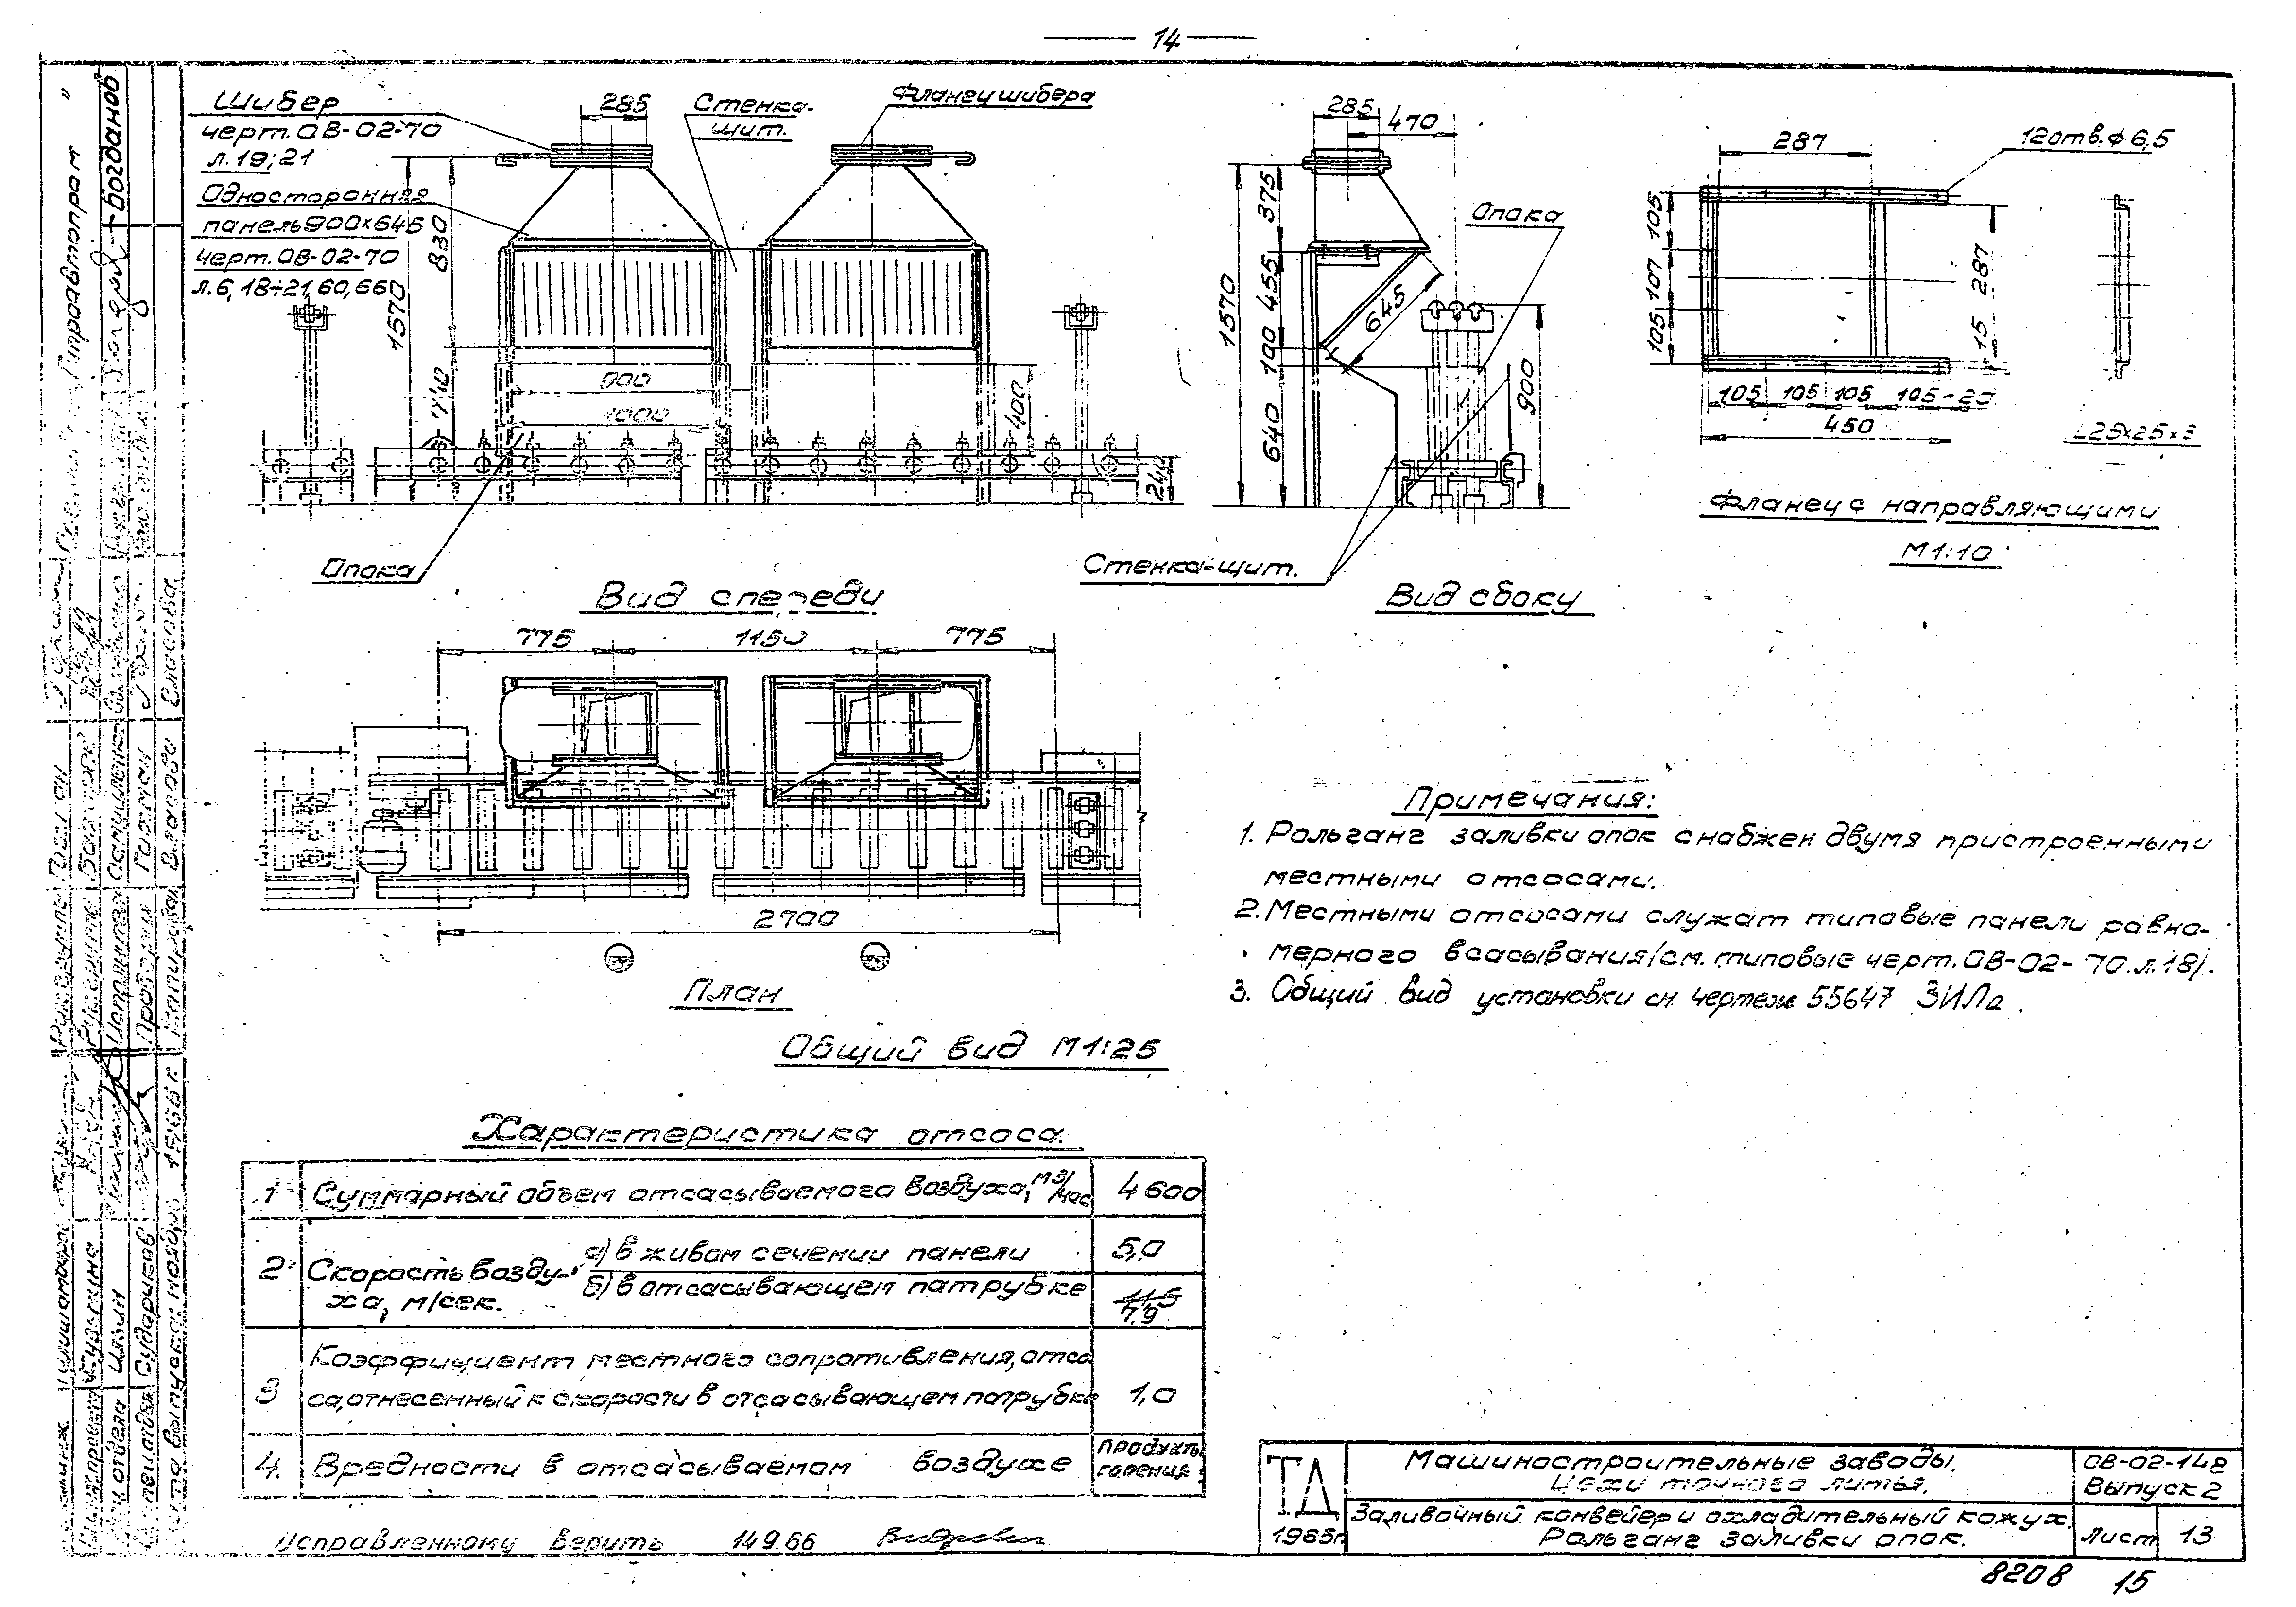 14
Шибер
черт. ОВ-02-70
л. 19; 21
Односторонняя
панель 900×645
черт. ОВ-02-70
л. 6, 18÷21, 60, 66
285
Стенка-
щит.
Фланец шибера
1570
830
740
900
1000
400
240
Опока
Вид спереди
285
470
Опока
1570
375
455
190
640
645
900
Стенка-щит.
Вид сбоку
287
12 отв. ф 6,5
105
107
105
287
15
105 105 105 105 20
450
L25×25×3
Фланец с направляющими
М 1:10
775
1150
775
2700
План
Общий вид М 1:25
Примечания:
1. Рольганг заливки опок снабжен двумя пристроенными
местными отсосами.
2. Местными отсосами служат типовые панели равно-
мерного всасывания /см. типовые черт. ОВ-02-70 л. 18/.
3. Общий вид установки см. чертеж 55647 ЗИЛа.
Характеристика отсоса.
1 Суммарный объем отсасываемого воздуха, м3/час 4600
2 Скорость возду-
ха, м/сек.
а) в живом сечении панели 5,0
б) в отсасывающем патрубке 11,5
7,9
3 Коэффициент местного сопротивления, отсо
са, отнесенный к скорости в отсасывающем патрубке 1,0
4. Вредности в отсасываемом воздухе продукты
горения
Исправленному верить 14.9.66
ТД
1965г.
Машиностроительные заводы.
Цехи точного литья.
ОВ-02-148
Выпуск 2
Заливочный конвейер и охладительный кожух.
Рольганг заливки опок.
Лист 13
8208 15
Гипроавтопром
Богданов
Власова
Гизман
Проверил
Копировал
Сударчиков
Цязин